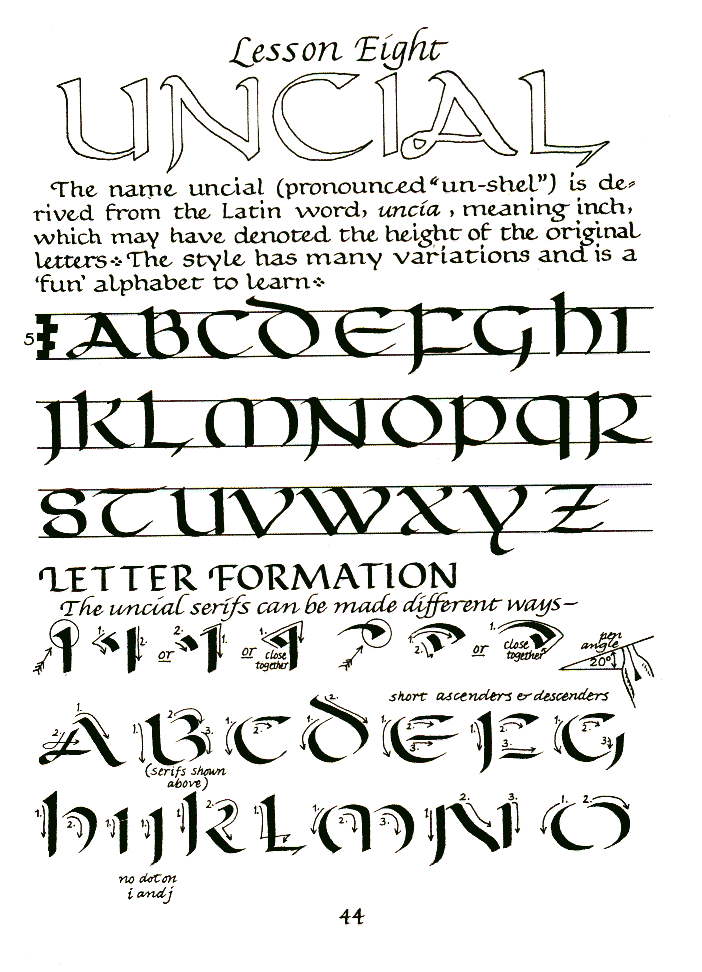 Lesson Eight
UNCIAL
The name uncial (pronounced "un-shel") is de-
rived from the Latin word, uncia, meaning inch,
which may have denoted the height of the original
letters The style has many variations and is a
'fun' alphabet to learn
5 ABCDEFGHI
JKLMNOPQR
STUVWXYZ
LETTER FORMATION
The uncial serifs can be made different ways—
1. 2. or 2. 1. or 1. close together 1. 2. or 1. close together pen angle 20°
short ascenders & descenders
1. 2. A 1. 2. 3. B 1. 2. C 1. 2. D 1. 2. 3. E 1. 2. 3. F 1. 2. 3. G
(serifs shown
above)
1. 2. h 1. i 1. j 1. 2. k 1. L 1. 2. 3. M 1. 2. 3. N 1. 2. O
no dot on
i and j
44